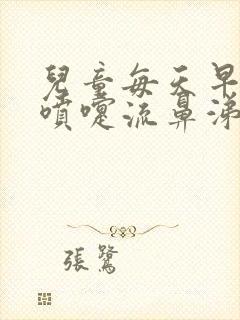 兒童每天早
噴嚏流鼻涕
張鷺